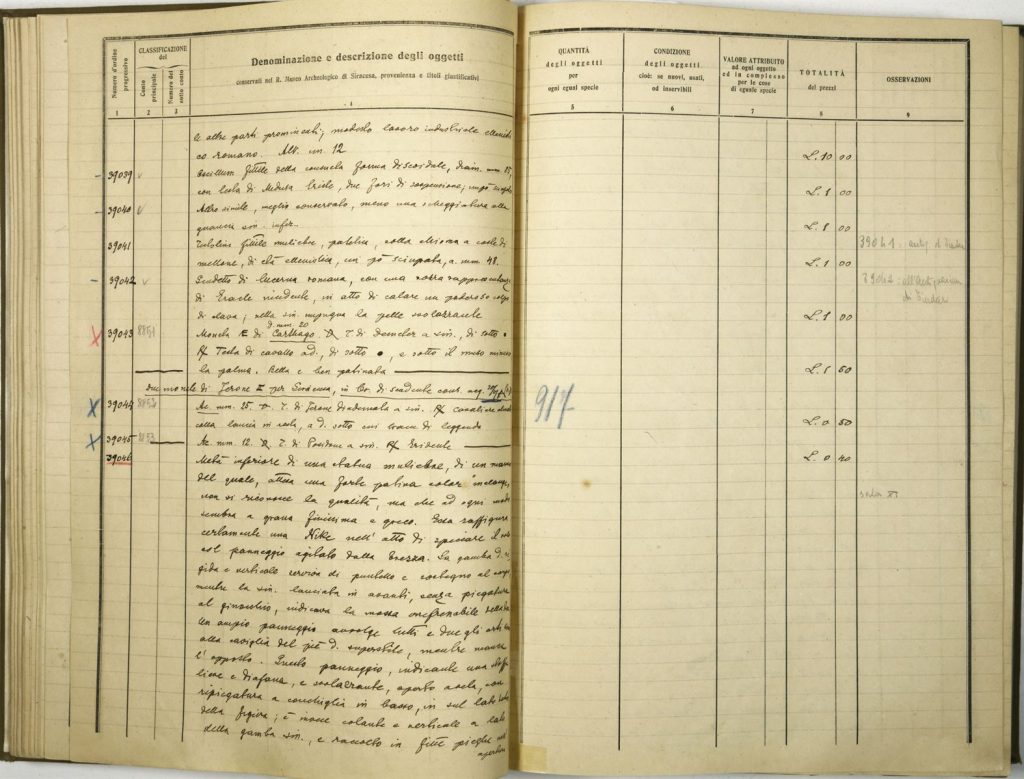 Numero d'ordine progressivo
CLASSIFICAZIONE del
Conto principale
Numero del sotto conto
Denominazione e descrizione degli oggetti
conservati nel R. Museo Archeologico di Siracusa, provenienza e titoli giustificativi
QUANTITÀ degli oggetti per ogni egual specie
CONDIZIONE degli oggetti cioè: se nuovi, usati, od inservibili
VALORE ATTRIBUITO ad ogni oggetto ed in complesso per le cose di eguale specie
TOTALITÀ dei prezzi
OSSERVAZIONI
1 2 3 4 5 6 7 8 9
le altre parti prominenti; modesto lavoro industriale ellenisti
co romano. Alt. m. 12 L. 10 00
39039 Oscillum fittile della consueta forma discoidale, diam. mm. 85,
con testa di Medusa triste, due fori di sospensione; L. 1 00
39040 Altro simile, meglio conservato, meno una scheggiatura alla
guancia sin. infer. L. 1 00
39041 Testolina fittile muliebre, patolia, colla chioma a coste di 39041
mellone, di età ellenistica, un pò sciupata, a mm. 48. L. 1 00
39042 Scudetto di lucerna romana, con una rozza rappresentanza
di Eracle incedente, in atto di calare un poderoso colpo
di clava; nella sin. impugna la pelle svolazzante L. 1 00
39043 8851 Moneta Æ di Carthago. d. mm. 20 T. di Demeter a sin., di sotto •
R/ Testa di cavallo a d., di sotto •, e sotto il muso
la palma. Bella e ben patinata L. 1 50
due monete di Jerone II per Siracusa, in 917
39044 8852 Ae. mm. 25. D. T. di Jerone diademata a sin. R/ cavaliere
colla lancia in resta, a d. sotto con tracce di leggenda L. 0 50
39045 8853 Ae. mm. 12. D. T. di Posidone a sin. R/ Tridente L. 0 40
39046 Metà inferiore di una statua muliebre, di un marmo
del quale, attesa una forte patina color melange,
non si riconosce la qualità, ma che ad ogni modo
sembra a grana finissima e greco. Essa raffigura
certamente una Nike nell'atto di spiccare il volo
col panneggio agitato dalla brezza. La gamba d. ri
gida e verticale serviva di puntello e sostegno al corpo
mentre la sin. lanciata in avanti, senza piegatura
al ginocchio, indicava la mossa irrefrenabile della
Un ampio panneggio avvolge tutti e due gli arti
alla caviglia del piè d. superstite, mentre manca
l'opposto. Questo panneggio, indicante una stoffa
lieve e diafana, e svolazzante, aperto a vela, con
ripiegatura a conchiglia in basso, in sul lato
della figura; è invece colante e verticale a lato
della gamba sin., e raccolto in fitte pieghe nell'
apertura